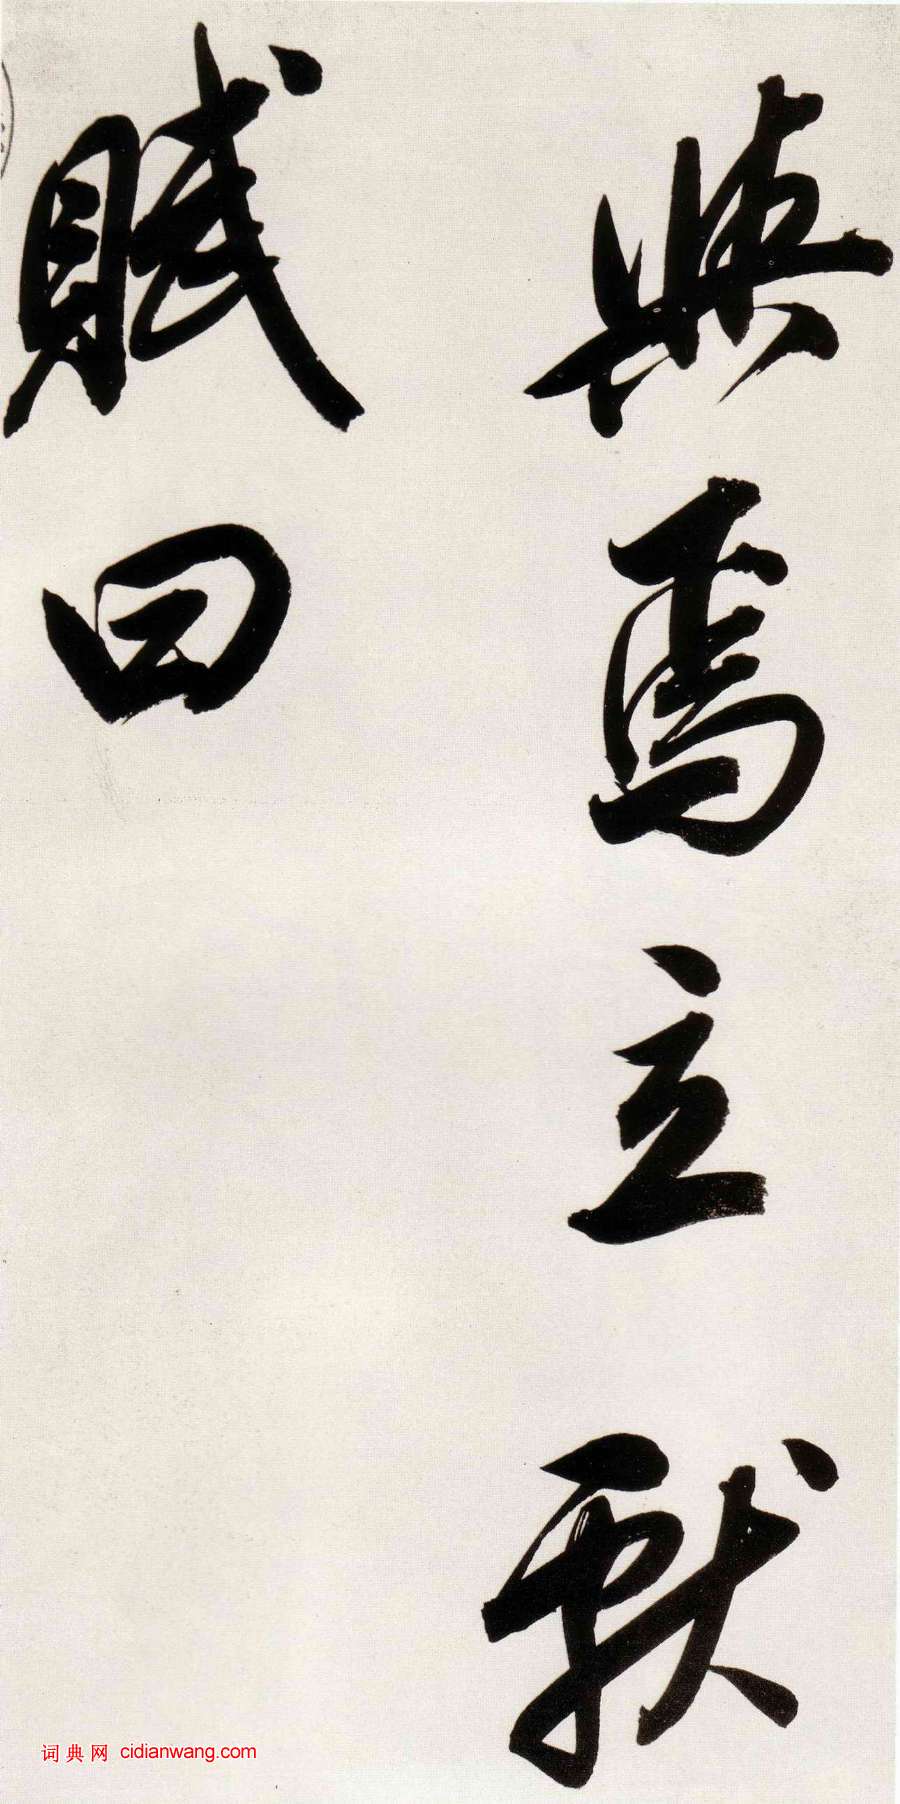 與焉立獻
賦曰
词典网 cidianwang.com